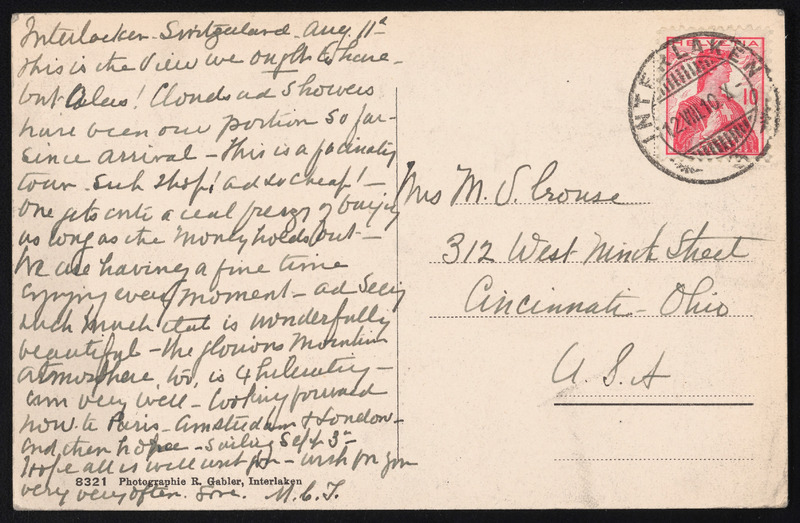 Interlaken - Switzerland - Aug. 11th
This is the View we ought to have -
but Alas! Clouds ad Showers
have been our portion so far -
since arrival - This is a facinatig
town. Such Shops! ad so cheap! -
One gets into a real frenzy of buyig
as long as the Money holds out -
We are having a fine time
enjoying every moment - ad Seeig
such much that is wonderfully
beautiful - the glorious Mountain
atmosphere, too, is
am very well - looking forward
now to Paris - Amsterdam & London -
and then home - sailing Sept 3rd
Hope all is well with you - wish for you
very very often. Love. M.C.T.
8321 Photographie R. Gabler, Interlaken
HELVETIA
10
INTERLAKEN
12.VIII.10.X-
Mrs M. S. Crouse
312 West Ninth Street
Cincinnati - Ohio
U.S.A